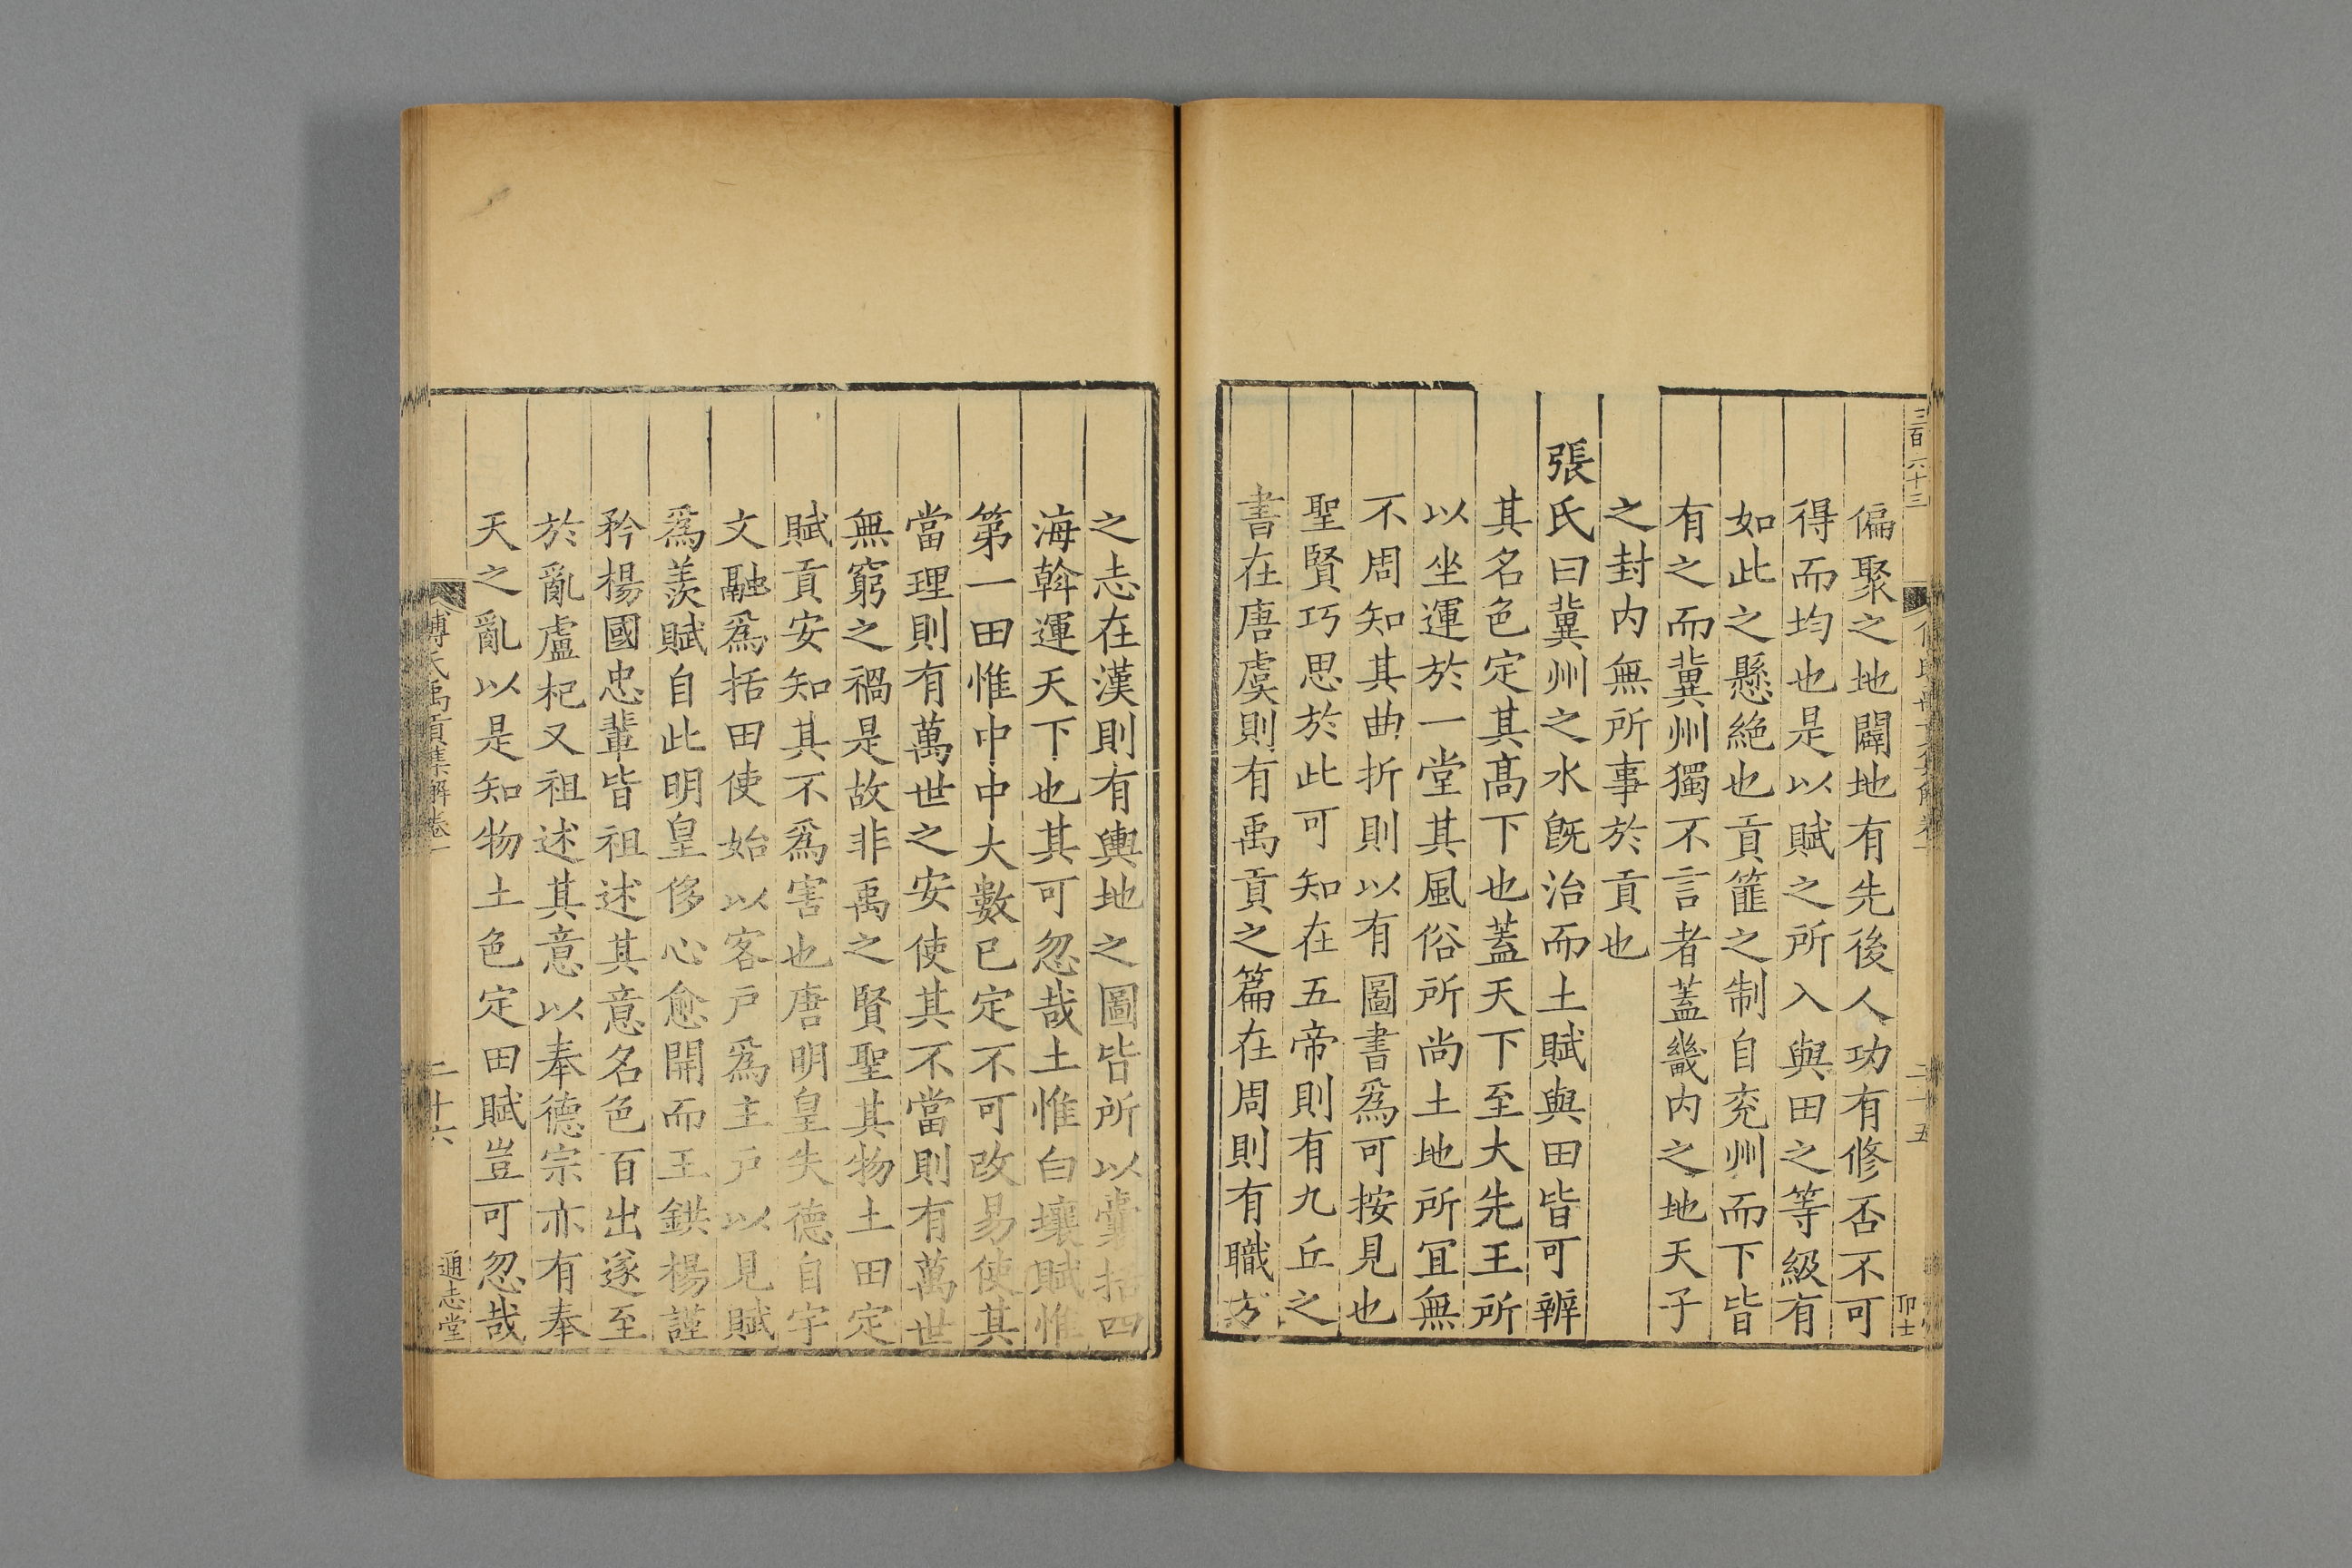 三百六十三
二十五
卬士
偏聚之地闢地有先後人功有修否不可
得而均也是以賦之所入與田之等級有
如此之懸絶也貢篚之制自兖州而下皆
有之而冀州獨不言者蓋畿内之地天子
之封内無所事於貢也
張氏曰冀州之水旣治而土賦與田皆可辨
其名色定其髙下也蓋天下至大先王所
以坐運於一堂其風俗所尚土地所宜無
不周知其曲折則以有圖書爲可按見也
聖賢巧思於此可知在五帝則有九丘之
書在唐虞則有禹貢之篇在周則有職方
之志在漢則有輿地之圖皆所以囊括四
海斡運天下也其可忽哉土惟白壤賦惟
第一田惟中中大數已定不可改易使其
當理則有萬世之安使其不當則有萬世
無窮之禍是故非禹之賢聖其物土田定
賦貢安知其不爲害也唐明皇失德自宇
文融爲括田使始以客戸爲主戸以見賦
爲羨賦自此明皇侈心愈開而王鉷楊謹
矜楊國忠輩皆祖述其意名色百出遂至
於亂盧杞又祖述其意以奉德宗亦有奉
天之亂以是知物土色定田賦豈可忽哉
傅氏禹貢集解卷一
二十六
通志堂